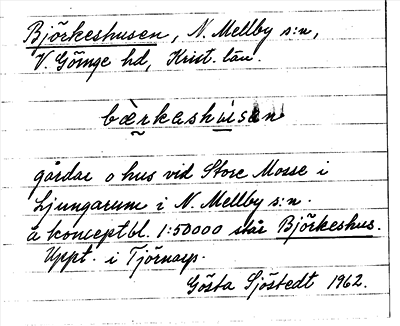 Björkeshusen, N. Mellby s:n,
V. Göinge hd, Krist. län.
bæ̀rkashu̇sən
gårdar o hus vid Store Mosse i
Ljungarum i N. Mellby s:n.
å konceptbl. 1:50000 står Björkeshus.
Uppt. i Tjörnarp.
Gösta Sjöstedt 1962.